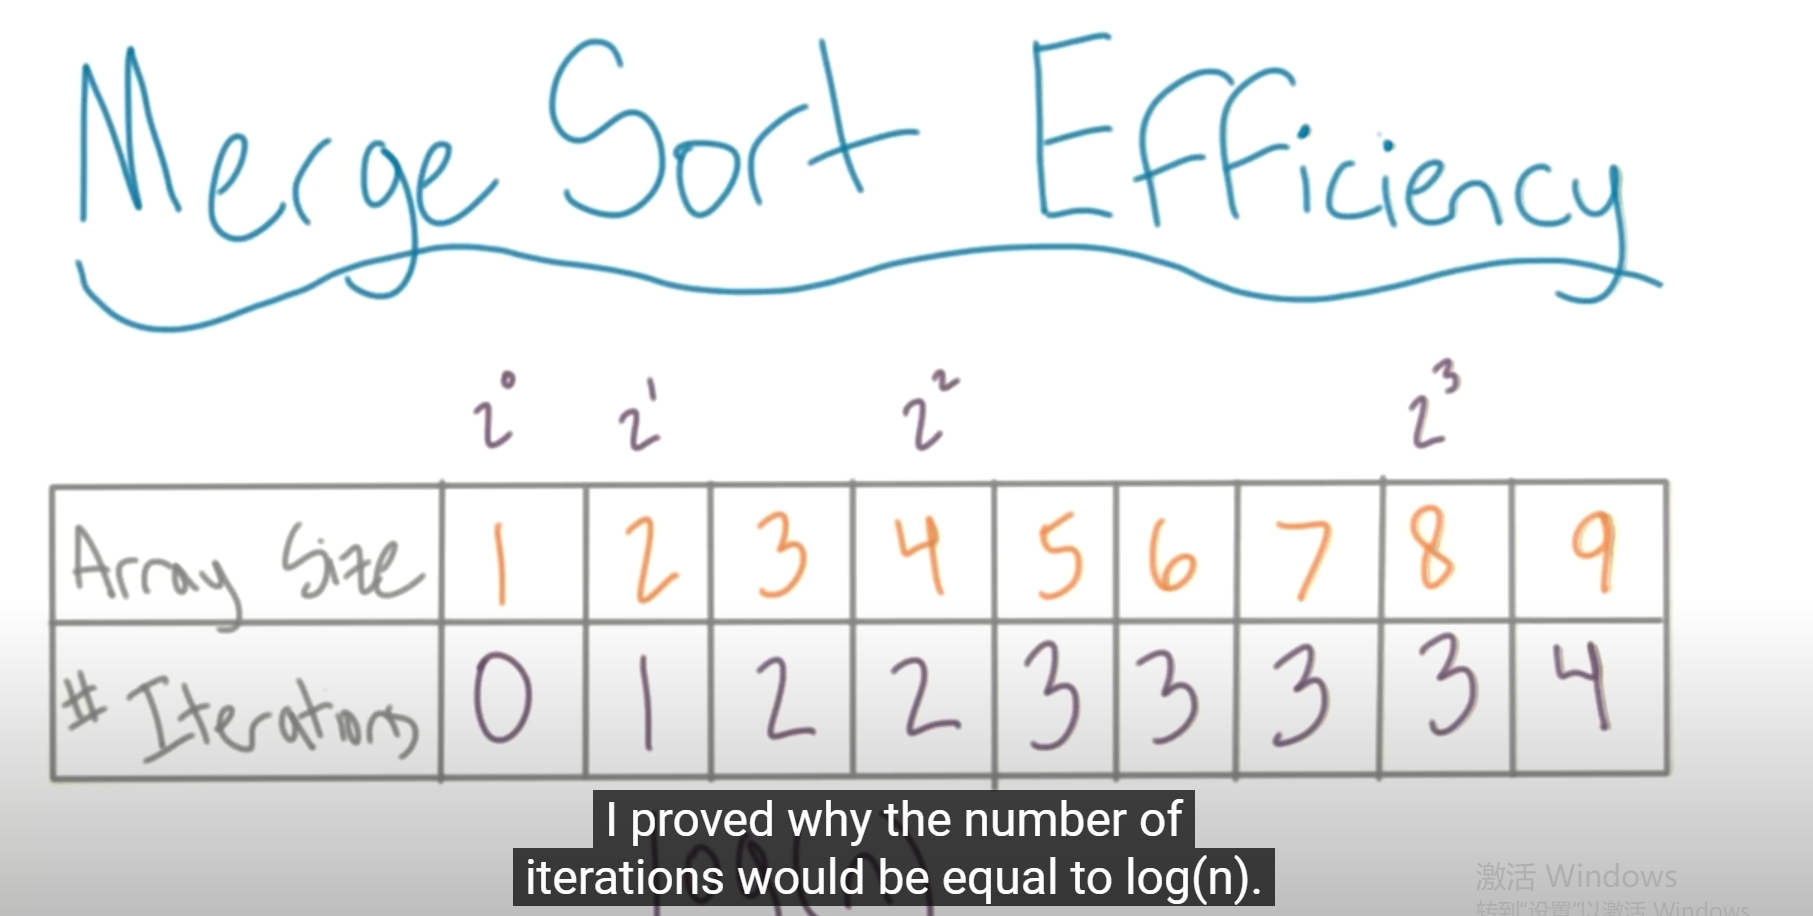 Merge Sort Efficiency
2⁰ 2¹ 2² 2³
Array Size 1 2 3 4 5 6 7 8 9
# Iterations 0 1 2 2 3 3 3 3 4
log(n)
I proved why the number of
iterations would be equal to log(n).
激活 Windows
转到"设置"以激活 Windows